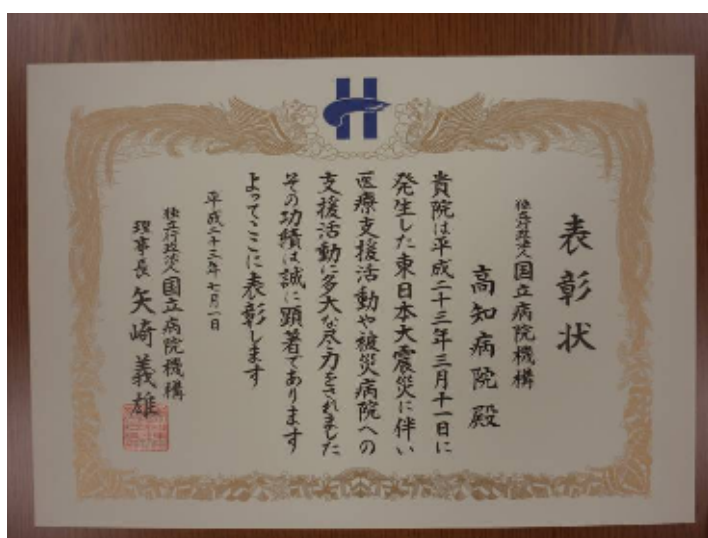 表彰状
独立行政法人国立病院機構
高知病院殿
貴院は平成二十三年三月十一日に
発生した東日本大震災に伴い
医療支援活動や被災病院への
支援活動に多大な尽力をされました
その功績は誠に顕著であります
よってここに表彰します
平成二十三年七月一日
独立行政法人国立病院機構
理事長矢崎義雄